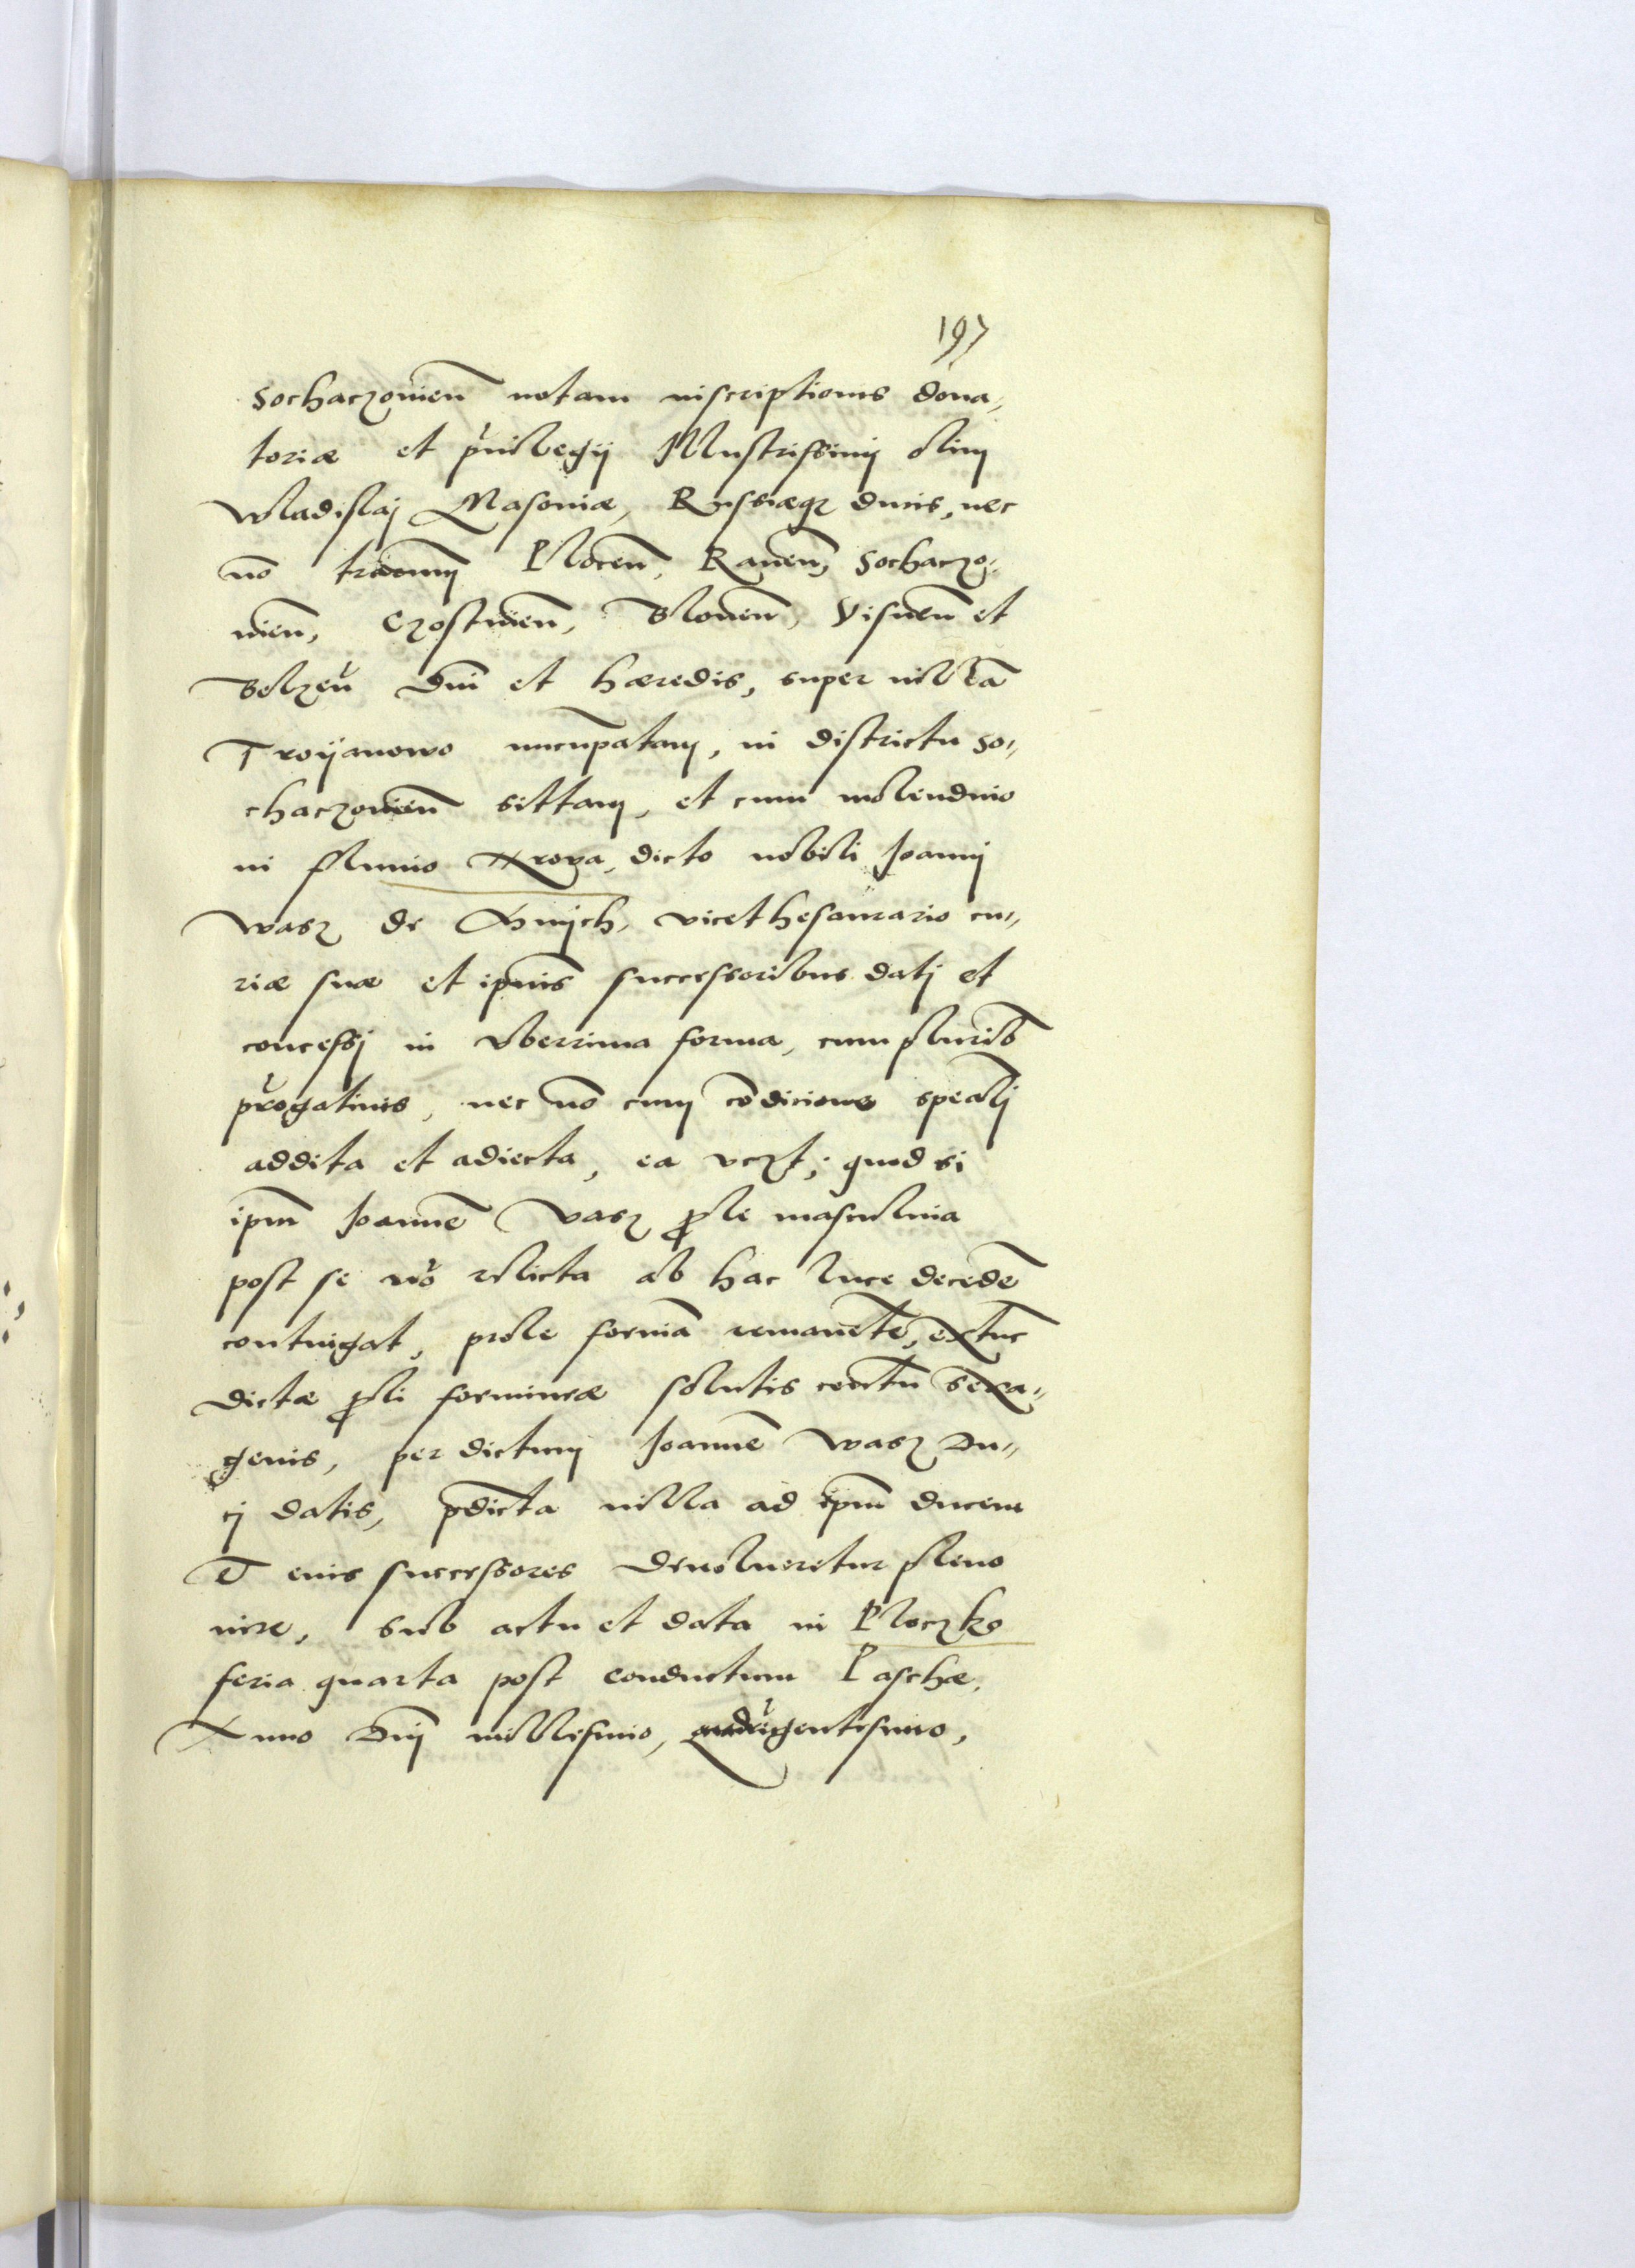 197
Sochaczouien̄ notam inscriptionis dona„
toriæ et priuilegij Illustrissimj olim
Wladislaj Masoniæ, Russiæq₃ ducis, nec
nō terrarum Plocen̄, Rauen̄, Sochaczo„
uien̄, Gostinen̄, Plonen̄, Visnen̄ et
Belzen̄ Dnī et hæredis, super villā
Troijanowo nuncupatam, in districtu So„
chaczouien̄ sittam, et cum molendino
in fluuio dicto nobili Joannj
Wasz de vicethesaurario cu„
riæ suæ et ipsius successoribus datj et
concessj in vberrima forma, cum plurib₉
prerogatiuis, nec nō cum cōdicione spealj
addita et adiecta, ea vczt; quod si
ipm̄ Joannē Vasz ꝓle masculina
post se nō relicta ab hac luce decedē
contingat, prole fœminā remanēte, extūc
dictæ ꝓli fœmineæ solutis centū sexa„
genis, per dictum Joannē Wasz Du„
cj datis, p̄dicta villa ad ipm̄ ducem
et eius successores deuolueretur pleno
iure, sub actu et data in Ploczko
feria quarta post conductum Paschæ,
Anno Dnj millesimo, quadringentesimo,